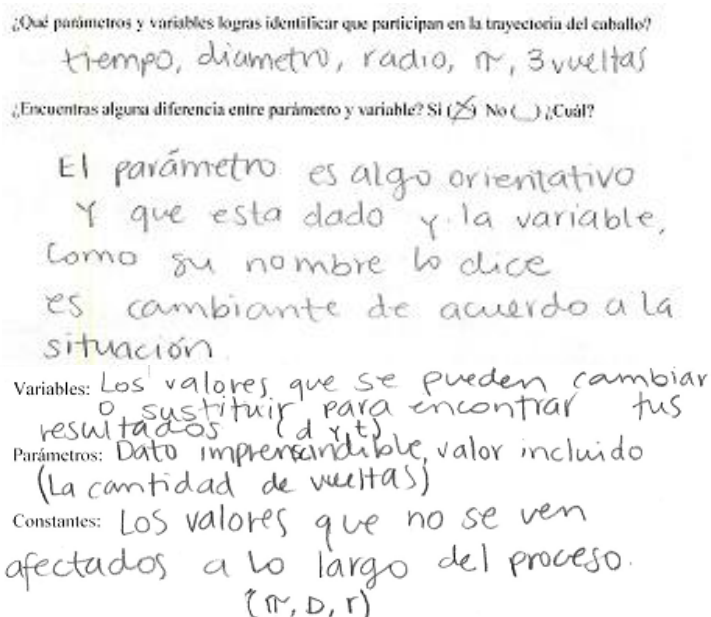 ¿Qué parámetros y variables logras identificar que participan en la trayectoria del caballo?
tiempo, diametro, radio, π, 3 vueltas
¿Encuentras alguna diferencia entre parámetro y variable? Si (X) No (__) ¿Cuál?
El parámetro es algo orientativo
Y que esta dado y la variable,
como su nombre lo dice
es cambiante de acuerdo a la
situación.
Variables: Los valores que se pueden cambiar
o sustituir para encontrar tus
resultados (d y t)
Parámetros: Dato imprensindible, valor incluido
(La cantidad de vueltas)
Constantes: Los valores que no se ven
afectados a lo largo del proceso.
(π, D, r)